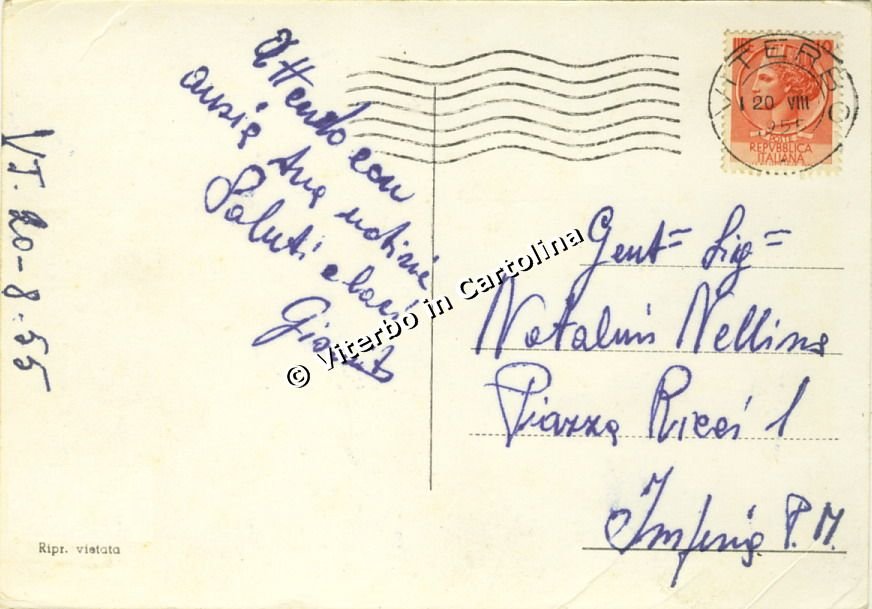 VT. 20-8-55
Attendo con
ansia tua notizie
Saluti e baci
© Viterbo in Cartolina
LIRE 10
VITERBO
20 VIII
1955
POSTE
REPVBBLICA
ITALIANA
Gent= Sig=
Natalini Nellina
Piazza Ricci 1
Imperia P.M.
Ripr. vietata